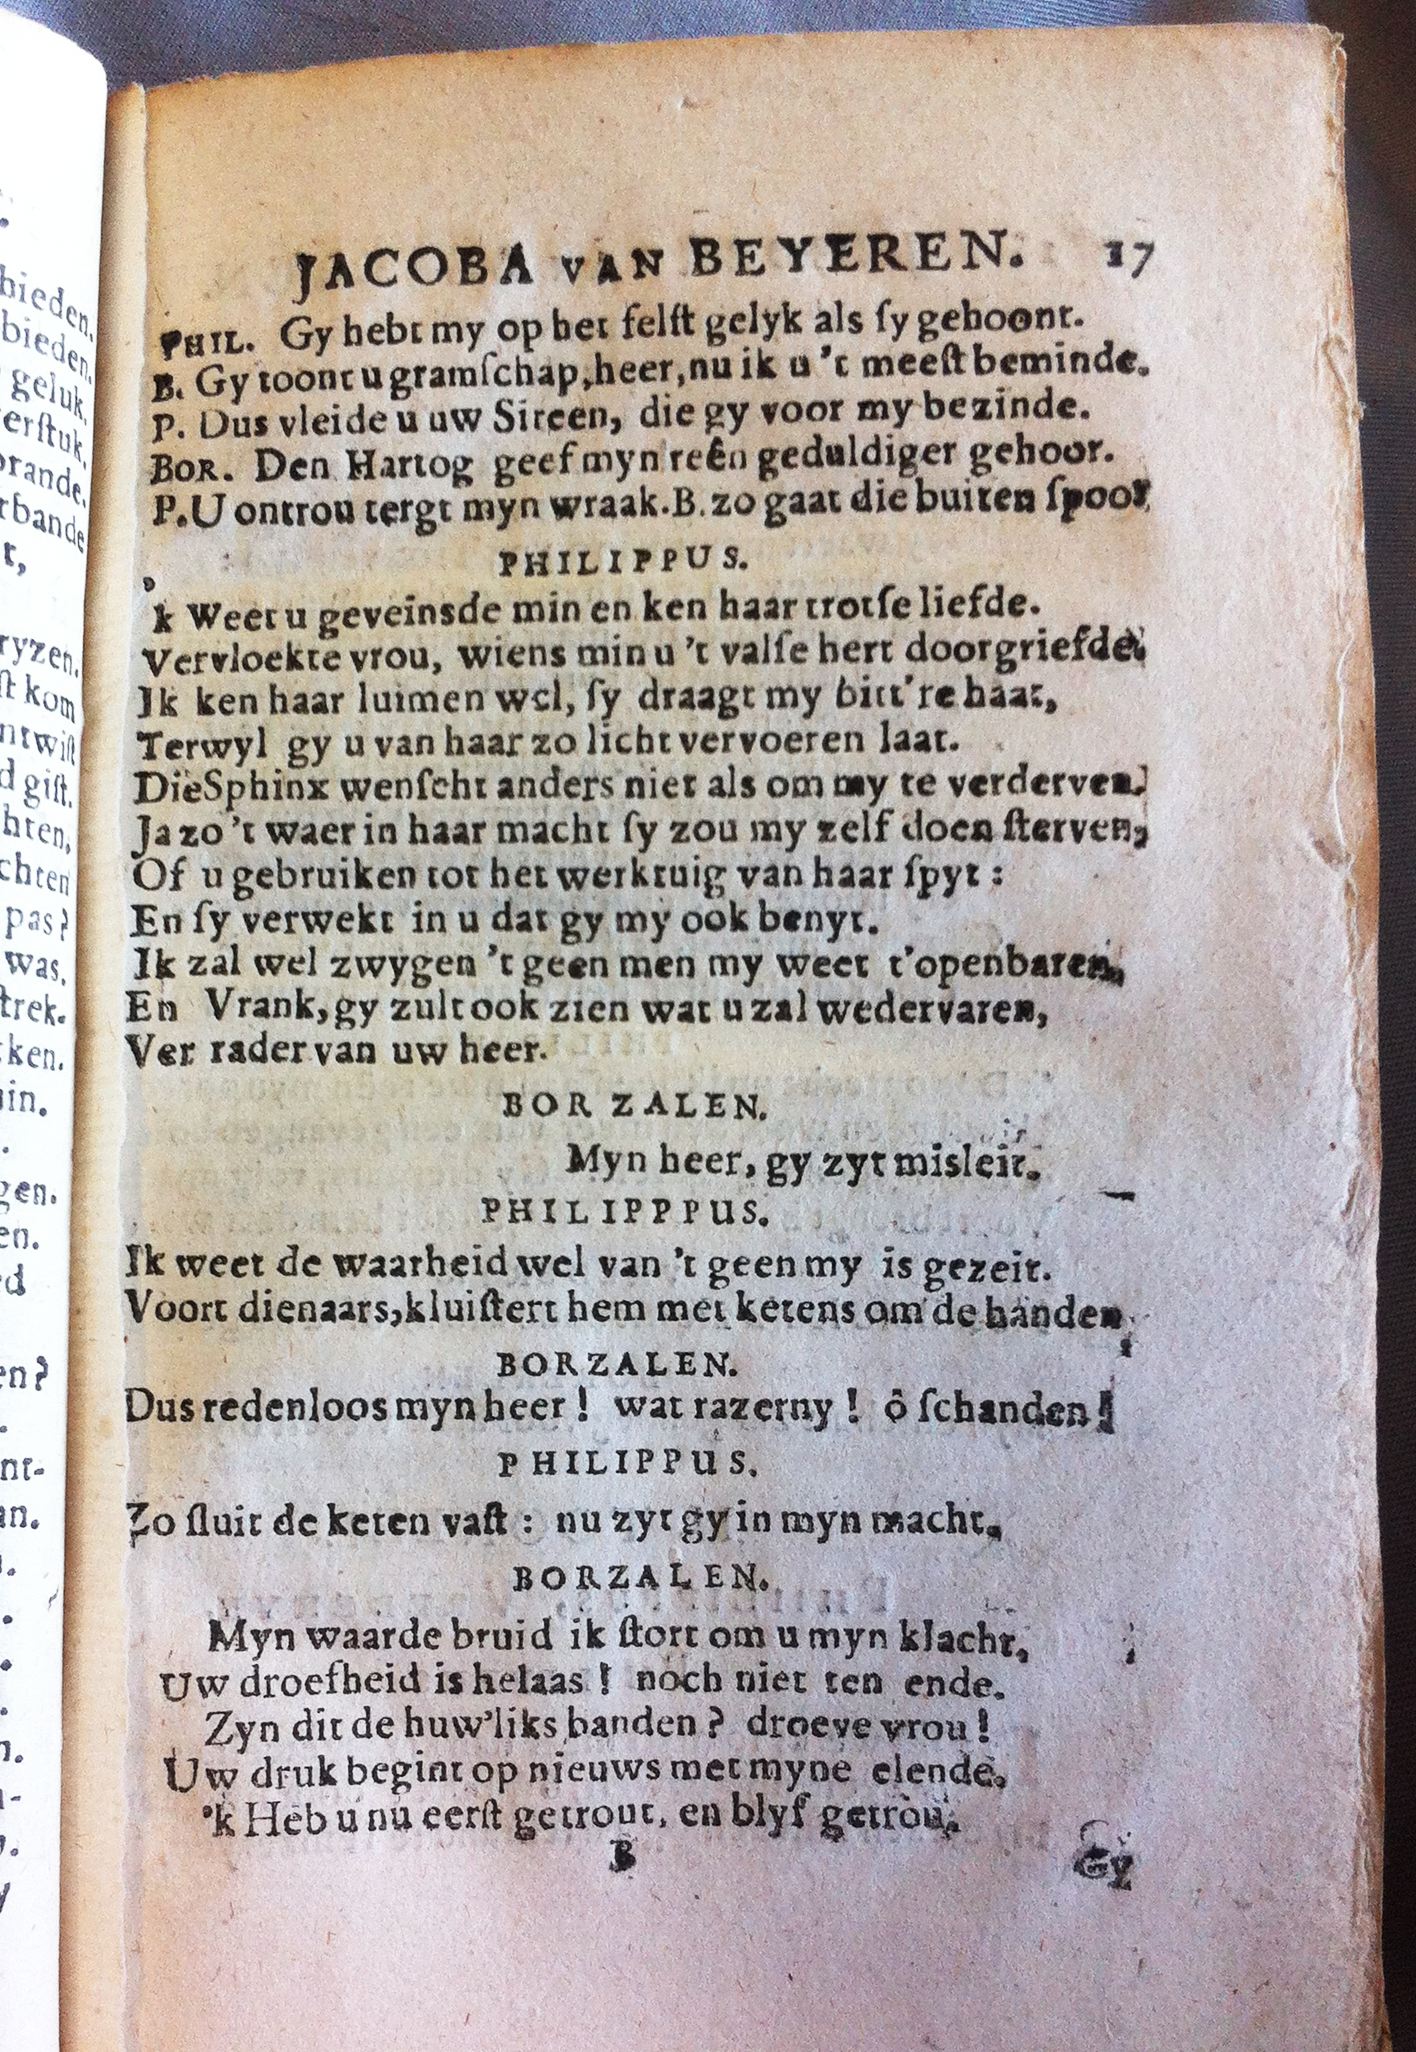 JACOBA VAN BEYEREN. 17
PHIL. Gy hebt my op het felſt gelyk als ſy gehoont.
B. Gy toont u gramſchap, heer, nu ik u 't meeſt beminde.
P. Dus vleide u uw Sireen, die gy voor my bezinde.
BOR. Den Hartog geef myn reên geduldiger gehoor.
P. U ontrou tergt myn wraak. B. zo gaat die buiten ſpoor
PHILIPPUS.
'k Weet u geveinsde min en ken haar trotſe liefde.
Vervloekte vrou, wiens min u 't valſe hert doorgriefde.
Ik ken haar luimen wel, ſy draagt my bitt're haat,
Terwyl gy u van haar zo licht vervoeren laat.
Die Sphinx wenſcht anders niet als om my te verderven.
Ja zo 't waer in haar macht ſy zou my zelf doen ſterven,
Of u gebruiken tot het werktuig van haar ſpyt:
En ſy verwekt in u dat gy my ook benyt.
Ik zal wel zwygen 't geen men my weet t'openbaren,
En Vrank, gy zult ook zien wat u zal wedervaren,
Ver rader van uw heer.
BORZALEN.
Myn heer, gy zyt misleit.
PHILIPPPUS.
Ik weet de waarheid wel van 't geen my is gezeit.
Voort dienaars, kluiſtert hem met ketens om de handen.
BORZALEN.
Dus redenloos myn heer! wat razerny! ô ſchanden!
PHILIPPUS.
Zo ſluit de keten vaſt: nu zyt gy in myn macht.
BORZALEN.
Myn waarde bruid ik ſtort om u myn klacht,
Uw droefheid is helaas! noch niet ten ende.
Zyn dit de huw'liks banden? droeve vrou!
Uw druk begint op nieuws met myne elende.
'k Heb u nu eerſt getrout, en blyf getrou.
B Gy
bieden.
bieden.
geluk.
erſtuk.
orande.
rbande
t,
ryzen.
ſt kom
ntwiſt
d giſt.
hten,
chten
pas?
was.
trek.
ken.
in.
gen.
en.
rd
en?
nt-
an.